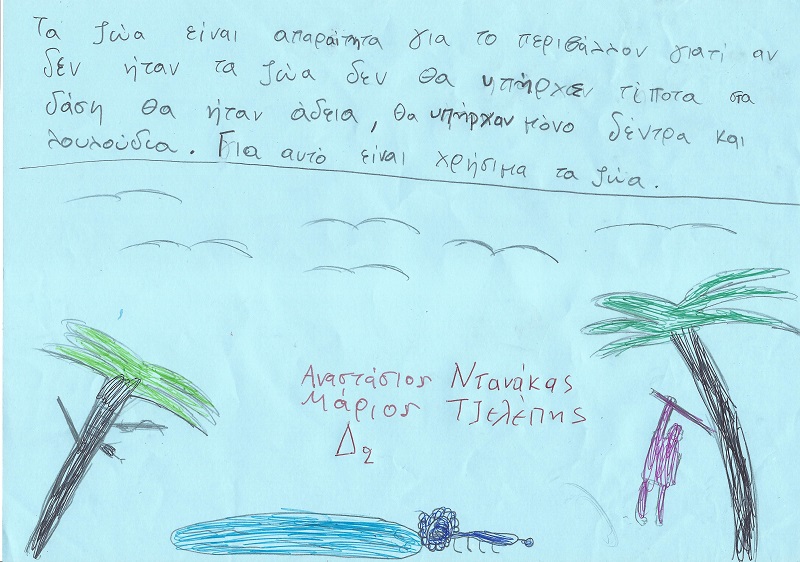 Τα ζώα είναι απαραίτητα για το περιβάλλον γιατί αν
δεν ήταν τα ζώα δεν θα υπήρχαν τίποτα στα
δάση θα ήταν άδεια, θα υπήρχαν μόνο δέντρα και
λουλούδια. Για αυτό είναι χρήσιμα τα ζώα.
Αναστάσιος Ντανάκας
Μάριος Τζελέπης
Δ2